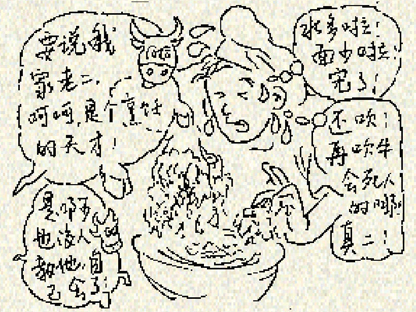 要说我
家老二，
呵呵，是个烹饪
的天才！
水多啦！
面少啦！
完了！
还吹！
再吹牛
会死人
的啊！
真二！
是啊
也没人
教他，自
己会了！